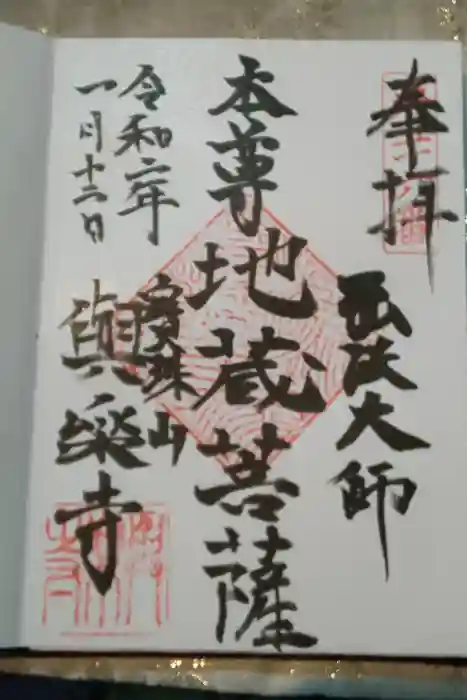 奉拝
弘法大師
本尊 地蔵菩薩
令和二年
一月十二日
摩珠山
真楽寺